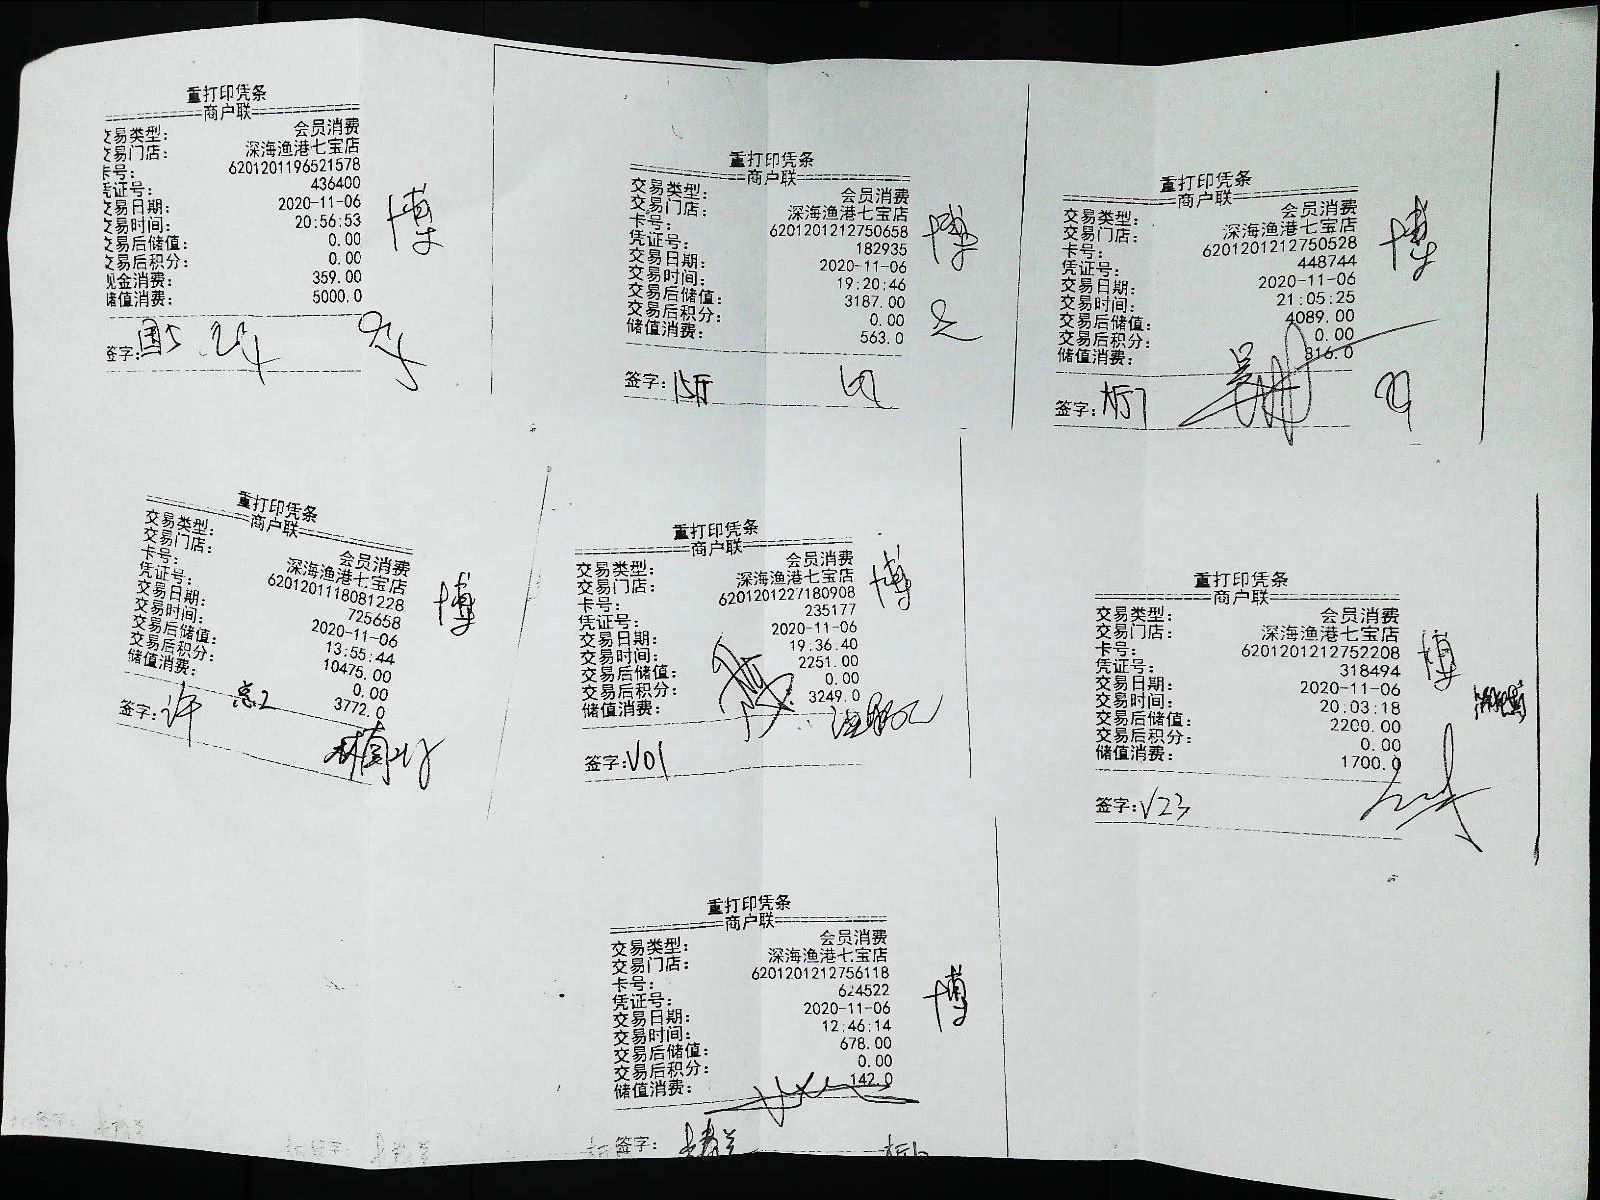 重打印凭条
商户联
交易类型： 会员消费
交易门店： 深海渔港七宝店
卡号： 6201201196521578
凭证号： 436400
交易日期： 2020-11-06
交易时间： 20:56:53
交易后储值： 0.00
交易后积分： 0.00
现金消费： 359.00
储值消费： 5000.0
博
签字：
重打印凭条
商户联
交易类型： 会员消费
交易门店： 深海渔港七宝店
卡号： 6201201212750658
凭证号： 182935
交易日期： 2020-11-06
交易时间： 19:20:46
交易后储值： 3187.00
交易后积分： 0.00
储值消费： 563.0
博
签字：
重打印凭条
商户联
交易类型： 会员消费
交易门店： 深海渔港七宝店
卡号： 6201201212750528
凭证号： 448744
交易日期： 2020-11-06
交易时间： 21:05:25
交易后储值： 4089.00
交易后积分： 0.00
储值消费： 816.0
博
签字：
重打印凭条
商户联
交易类型： 会员消费
交易门店： 深海渔港七宝店
卡号： 6201201118081228
凭证号： 725658
交易日期： 2020-11-06
交易时间： 13:55:44
交易后储值： 10475.00
交易后积分： 0.00
储值消费： 3772.0
博
签字：许
重打印凭条
商户联
交易类型： 会员消费
交易门店： 深海渔港七宝店
卡号： 6201201227180908
凭证号： 235177
交易日期： 2020-11-06
交易时间： 19:36:40
交易后储值： 2251.00
交易后积分： 0.00
储值消费： 3249.0
博
签字：V01
重打印凭条
商户联
交易类型： 会员消费
交易门店： 深海渔港七宝店
卡号： 6201201212752208
凭证号： 318494
交易日期： 2020-11-06
交易时间： 20:03:18
交易后储值： 2200.00
交易后积分： 0.00
储值消费： 1700.0
博
签字：V23
重打印凭条
商户联
交易类型： 会员消费
交易门店： 深海渔港七宝店
卡号： 6201201212756118
凭证号： 624522
交易日期： 2020-11-06
交易时间： 12:46:14
交易后储值： 678.00
交易后积分： 0.00
储值消费： 142.0
博
签字：